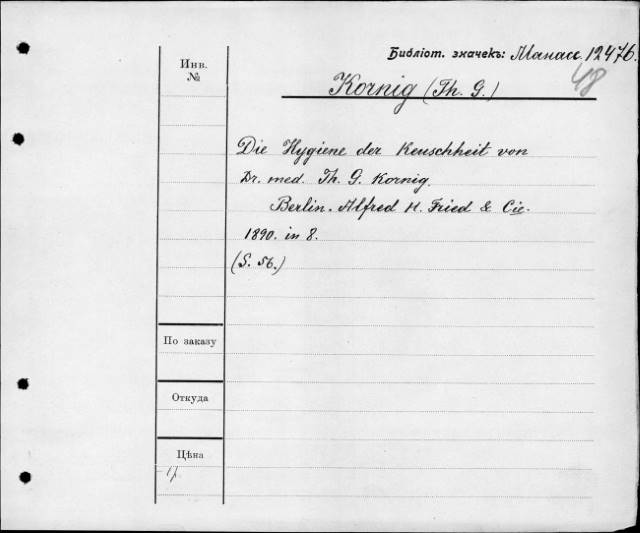 Библіот. значекъ: Манасс. 12476.
48
Инв.
№
Kornig (Th. G.)
Die Hygiene der Keuschheit von
Dr. med. Th. G. Kornig.
Berlin. Alfred H. Fried & Cie.
1890. in 8.
(S. 56.)
По заказу
Откуда
Цѣна